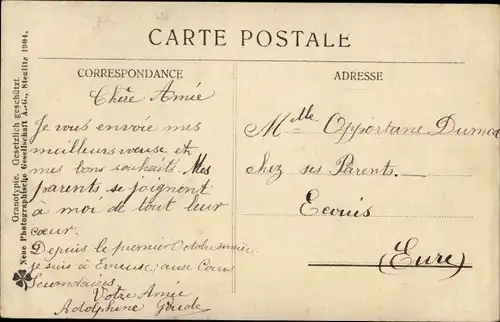 CARTE POSTALE
CORRESPONDANCE
Chère Amie
Je vous envoie mes
meilleurs vœuse et
mes bons souhaits. Mes
parents se joignent
à moi de tout leur
cœur.
Depuis le premier Octobre dernier
je suis à Evreuse aux Cours
Secondaires
Votre Amie
Adolphine
ADRESSE
Mlle Opportune
Chez ses Parents.
Ecouis
(Eure)
Oranotypie. Gesetzlich geschützt.
Neue Photographische Gesellschaft A.-G., Steglitz 1904.